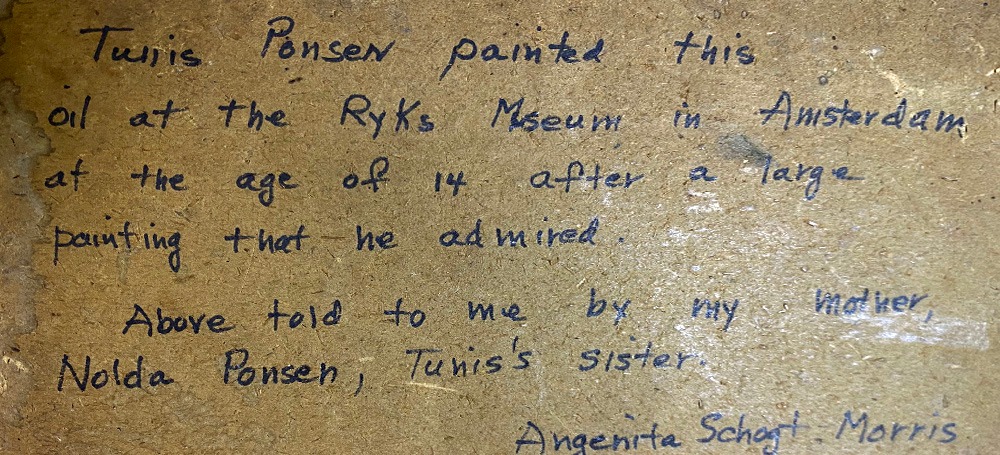 Tunis Ponsen painted this
oil at the Ryks Museum in Amsterdam
at the age of 14 after a large
painting that he admired.
Above told to me by my mother,
Nolda Ponsen, Tunis's sister.
Angenita Schogt Morris